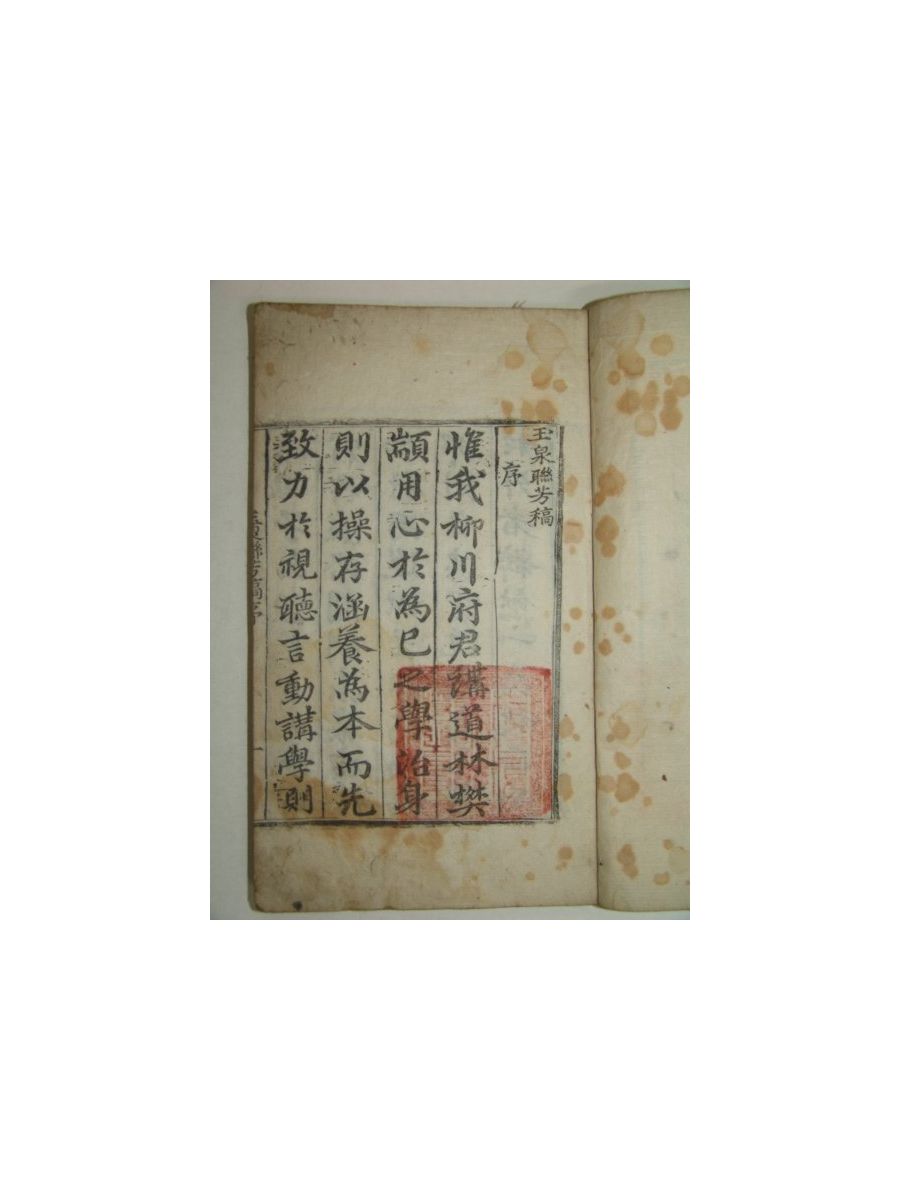 玉泉聯芳稿
序
惟我柳川府君講道林樊
顓用心於為己之學治身
則以操存涵養為本而先
致力於視聽言動講學則
聯芳稿序
一